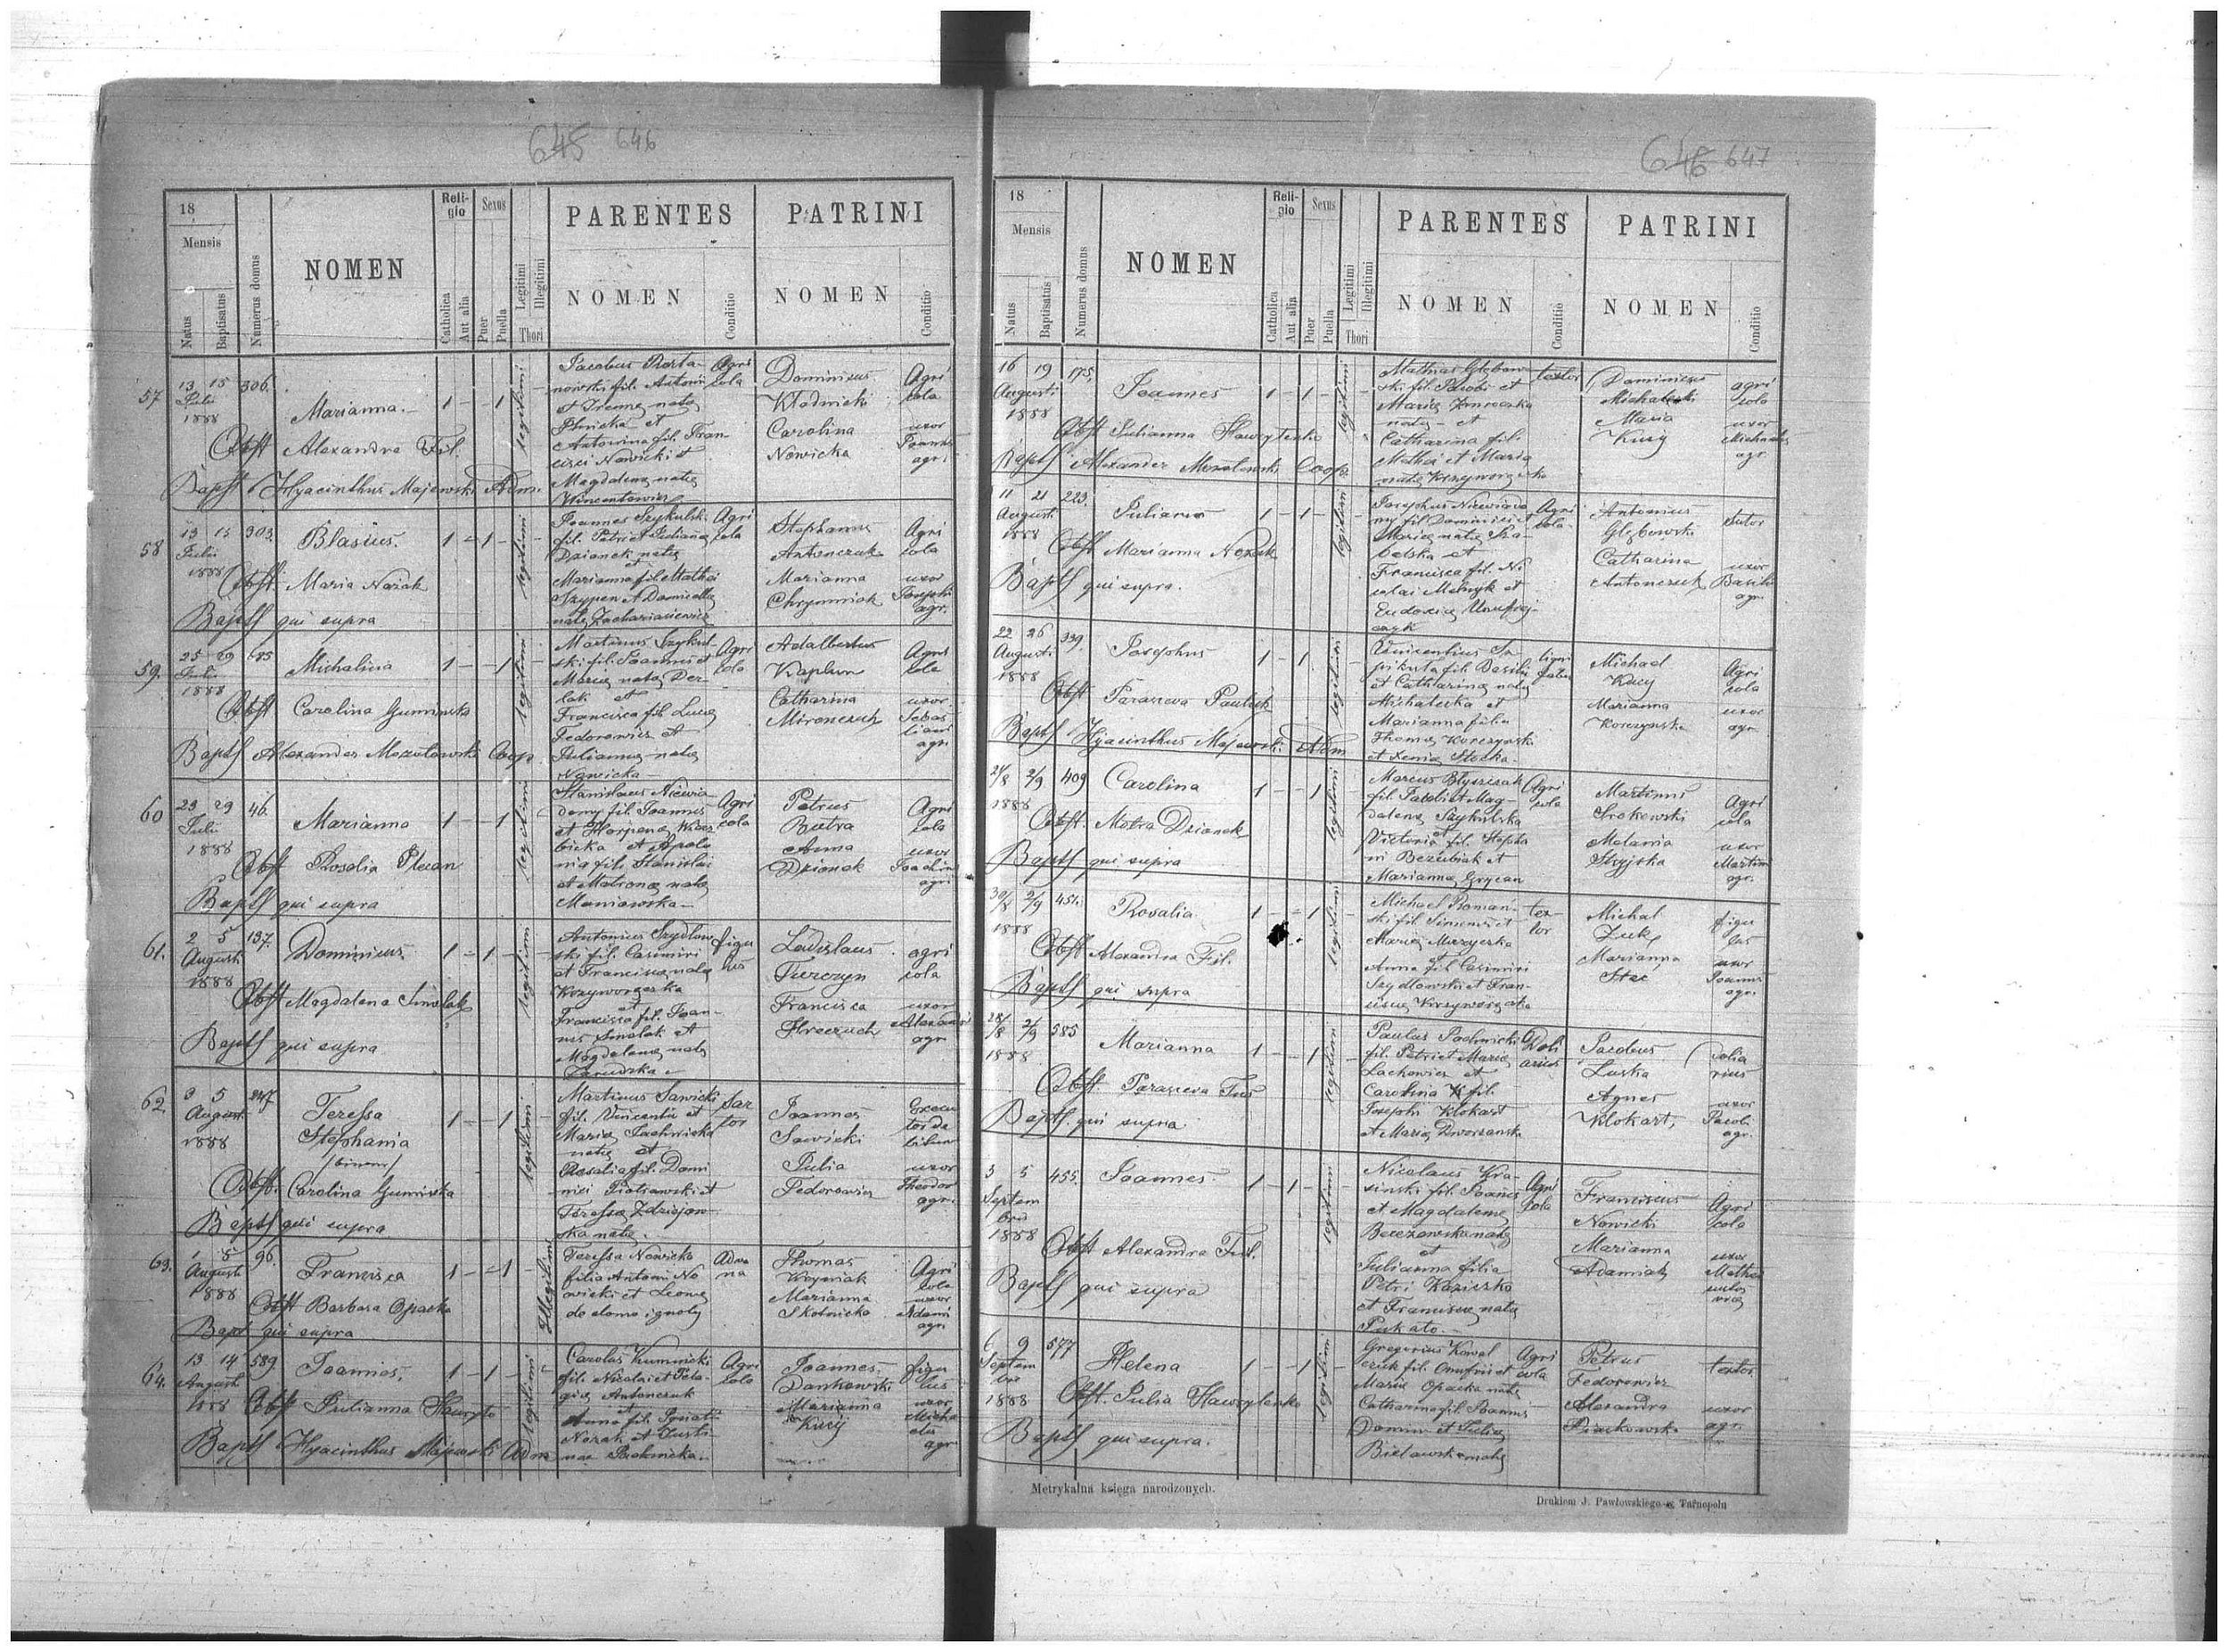 645 646
18
Mensis
Natus
Baptisatus
Numerus domus
NOMEN
Religio
Catholica
Aut alia
Sexus
Puer
Puella
Legitimi
Illegitimi
Thori
PARENTES
NOMEN
Conditio
PATRINI
NOMEN
Conditio
57
13 15 306.
Julii
1888
Marianna.
1 - - 1 -
legitimi
Obst Alexandra Fil.
Bapts Hyacinthus Majewski Adm.
Jacobus
nowski fil. Antoni
et Irenae nata
et
Antonina fil. Fran
cisci Nowicki et
Magdalena nata
Wincentowicz
Agri
cola
Dominicus
Kładnicki
Carolina
Nowicka
Agri
cola
uxor
Joannis
agr.
58
13 15 303.
Julii
1888
Blasius.
1 - 1 - -
legitimi
Obst. Maria Nazak
Bapts qui supra
Joannes Szykulski
fil. Petri et Juliana
Dzionek nata
et
Marianna fil. Mathei
Szypen et Domicella
nata Zachariasiewicz
Agri
cola
Stephanus
Antonczak
Marianna
Agri
cola
uxor
Josephi
agr.
59.
25 29
Julii
1888
Michalina
1 - - 1 -
legitimi
Obst Carolina Guminska
Bapts Alexander Mozolowski Coop.
Martinus Szykul-
ski fil. Joannis et
Maria nata Der-
lak et
Francisca fil. Lucae
Fedorowicz et
Julianna nata
Nowicka
Agri
cola
Adalbertus
Kaplun
Catharina
Mironczuk
Agri
cola
uxor
Sebas
tiani
agr.
60
23 29 46.
Julii
1888
Marianna
1 - - 1 -
legitimi
Obst Rosalia Plecan
Bapts qui supra
Stanislaus Niewia
domy fil. Joannis
et
et Apolo
nia fil. Stanislai
et Matrona nata
Maniowska
Agri
cola
Petrus
Butra
Anna
Dzionek
Agri
cola
uxor
Joachimi
agr.
61.
2 5 137.
Augusti
1888
Dominicus.
1 - 1 - -
legitimi
Obst Magdalena Smolak
Bapts qui supra
Antonius Szydłow
ski fil. Casimiri
et Francisca nata
Krzyworączka
et
Francisca fil. Joan-
nis Smolak et
Magdalena nata
Figu
lus
Ladislaus
Turczyn
Francisca
Hreczuch
agri
cola
uxor
Alexandri
agr.
62.
3 5 247
Augusti
1888
Teressa
Stephania
/binom/
1 - - 1 -
legitimi
Obst. Carolina Guminska
Bapts qui supra
Martinus Sawicki
fil. Vincentii et
Maria Pachnicka
nata et
Rosalia fil. Domi
nici Piotrowski et
Teressa
ska nata.
Sar
tor
Joannes
Sawicki
Julia
Fedorowicz
uxor
Theodor
agr.
63.
1 5 96.
Augusti
1888
Francisca
1 - - 1 -
Illegitimi
Obst Barbara Opacka
Bapt qui supra
Teressa Nowicka
filia Antoni No
wicki et Leona
de domo ignota
Thomas
Woźniak
Marianna
Skotnicka
Agri
cola
uxor
Adami
agr.
64.
13 14 589.
Augusti
1888
Joannes.
1 - 1 - -
legitimi
Obst Julianna Hawryto
Bapts Hyacinthus Majewski Adm
Carolus Kuminicki
fil. Nicolai et Pela-
gia Antonczuk
et
Anna fil. Ignati
Nazak et Justi-
nae Pachnicka
Agri
cola
Joannes
Dankowski
Marianna
Kucij
figu
lus
uxor
Micha
elis
agr.
646 647
18
Mensis
Natus
Baptisatus
Numerus domus
NOMEN
Religio
Catholica
Aut alia
Sexus
Puer
Puella
Legitimi
Illegitimi
Thori
PARENTES
NOMEN
Conditio
PATRINI
NOMEN
Conditio
16 19 175.
Augusti
1888
Joannes
1 - 1 - -
legitimi
Obst Julianna Hawrylenko
Bapts Alexander Mozolowski Coop.
Mathias Głębow
ski fil. Jacobi et
Maria
nata et
Catharina fil.
Mathei et Maria
nata Krzyworączka
textor
Dominicus
Michalski
Maria
Kucy
agri
cola
uxor
Michaelis
agr.
11 21 223.
Augusti
1888
Julianus
1 - 1 - -
legitimi
Obst Marianna Nozak
Bapts qui supra.
Josephus Niewiado
my fil. Dominici et
Maria nata Sza-
belska et
Francisca fil. Ni
colai Melnyk et
Eudoxia
Agri
cola
Antonius
Głębowski
Catharina
Antonczuk
sutor
uxor
Basilii
agr.
22 26 339.
Augusti
1888
Josephus
1 - 1 - -
legitimi
Obst Parasceva Pauluk
Bapts Hyacinthus Majewski Adm
Vincentius Sa-
pikuta fil. Basilii
et Catharina nata
Michalecka et
Marianna filia
Thoma Korczynski
et Xenia Stocka
ligni
faber
Michael
Kucy
Marianna
Korczynska
Agri
cola
uxor
agr.
24/8 2/9 409
1888
Carolina
1 - - 1 -
legitimi
Obst. Motra Dzionek
Bapts qui supra
Marcus Błyszczak
fil. Jacobi et Mag-
dalena Szykulska
et
Victoria fil. Stepha
ni Bezubiak et
Marianna Grycan
Agri
cola
Martinus
Srokowski
Melania
Stryjska
Agri
cola
uxor
Martini
agr.
30/8 2/9 451.
1888
Rosalia
1 - - 1 -
legitimi
Obst Alexandra Fil.
Bapts qui supra
Michael Roman-
ski fil. Simeonis et
Maria
et
Anna fil. Casimiri
Szydłowski et Fran-
cisca Krzyworączka
tex-
tor
Michal
Żuk
Marianna
Stec
figu
lus
uxor
Joannis
agr.
28/8 2/9 585
1888
Marianna
1 - - 1 -
legitimi
Obst Parasceva Fus
Bapts. qui supra
Paulus Pachnicki
fil. Petri et Maria
Lachowicz et
Carolina fil.
Josephi Klokart
et Maria Dworzanska
Doli
arius
Jacobus
Luska
Agnes
Klokart
dolia
rius
uxor
Jacobi
agr.
3 5 455.
Septem
bris
1888
Joannes
1 - 1 - -
legitimi
Obst Alexandra Fil.
Bapts qui supra
Nicolaus Kra-
sinski fil. Joannis
et Magdalena
Berezowska nata
et
Julianna filia
Petri Kaziczko
et Francisca nata
Pukato.
Agri
cola
Franciscus
Nowicki
Marianna
Adamiak
Agri
cola
uxor
Mathei
6 9 577
Septem
bre
1888
Helena
1 - - 1 -
legitimi
Obst. Julia Hawrylenko
Bapts qui supra.
Gregorius Kowal
czuk fil. Onufrii et
Maria Opacka nata
Catharina fil. Joannis
Domin et Julia
Bielawska nata
Agri
cola
Petrus
Fedorowicz
Alexandra
Piaskowska
textor
uxor
agr.
Metrykalna księga narodzonych.
Drukiem J. Pawłowskiego w Tarnopolu